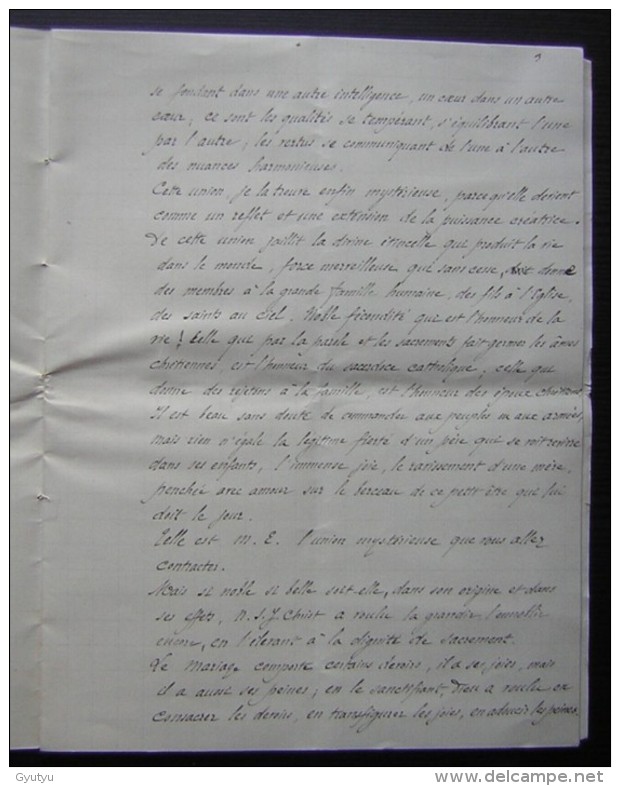 3
se fondent dans une autre intelligence, un cœur dans un autre
cœur, ce sont les qualités se tempérant, s'équilibrant l'une
par l'autre, les vertus se communiquant de l'une à l'autre
des nuances harmonieuses.
Cette union, je la trouve enfin mystérieuse, parce qu'elle devient
comme un reflet et une extension de la puissance créatrice.
De cette union jaillit la divine étincelle qui produit la vie
dans le monde, force merveilleuse qui sans cesse, donne
des membres à la grande famille humaine, des fils à l'Eglise,
des saints au ciel. Noble fécondité qui est l'honneur de la
vie! Celle qui par la parole et les sacrements fait germer les âmes
chrétiennes, est l'honneur du sacerdoce catholique, celle qui
donne des rejetons à la famille, est l'honneur des époux chrétiens.
Il est beau sans doute de commander aux peuples aux armées,
mais rien n'égale la légitime fierté d'un père qui se voit revivre
dans ses enfants, l'immense joie, le ravissement d'une mère,
penchée avec amour sur le berceau de ce petit être qui lui
doit le jour.
Telle est M. E. l'union mystérieuse que vous allez
contracter.
Mais si noble si belle soit-elle, dans son origine et dans
ses effets, N. S. J. Christ a voulu la grandir l'ennoblir
encore, en l'élevant à la dignité de sacrement.
Le Mariage comporte certains devoirs, il a ses joies, mais
il a aussi ses peines; en le sanctifiant, Dieu a voulu en
consacrer les devoirs, en transfigurer les joies, en adoucir les peines.
Gyutyu
www.delcampe.net